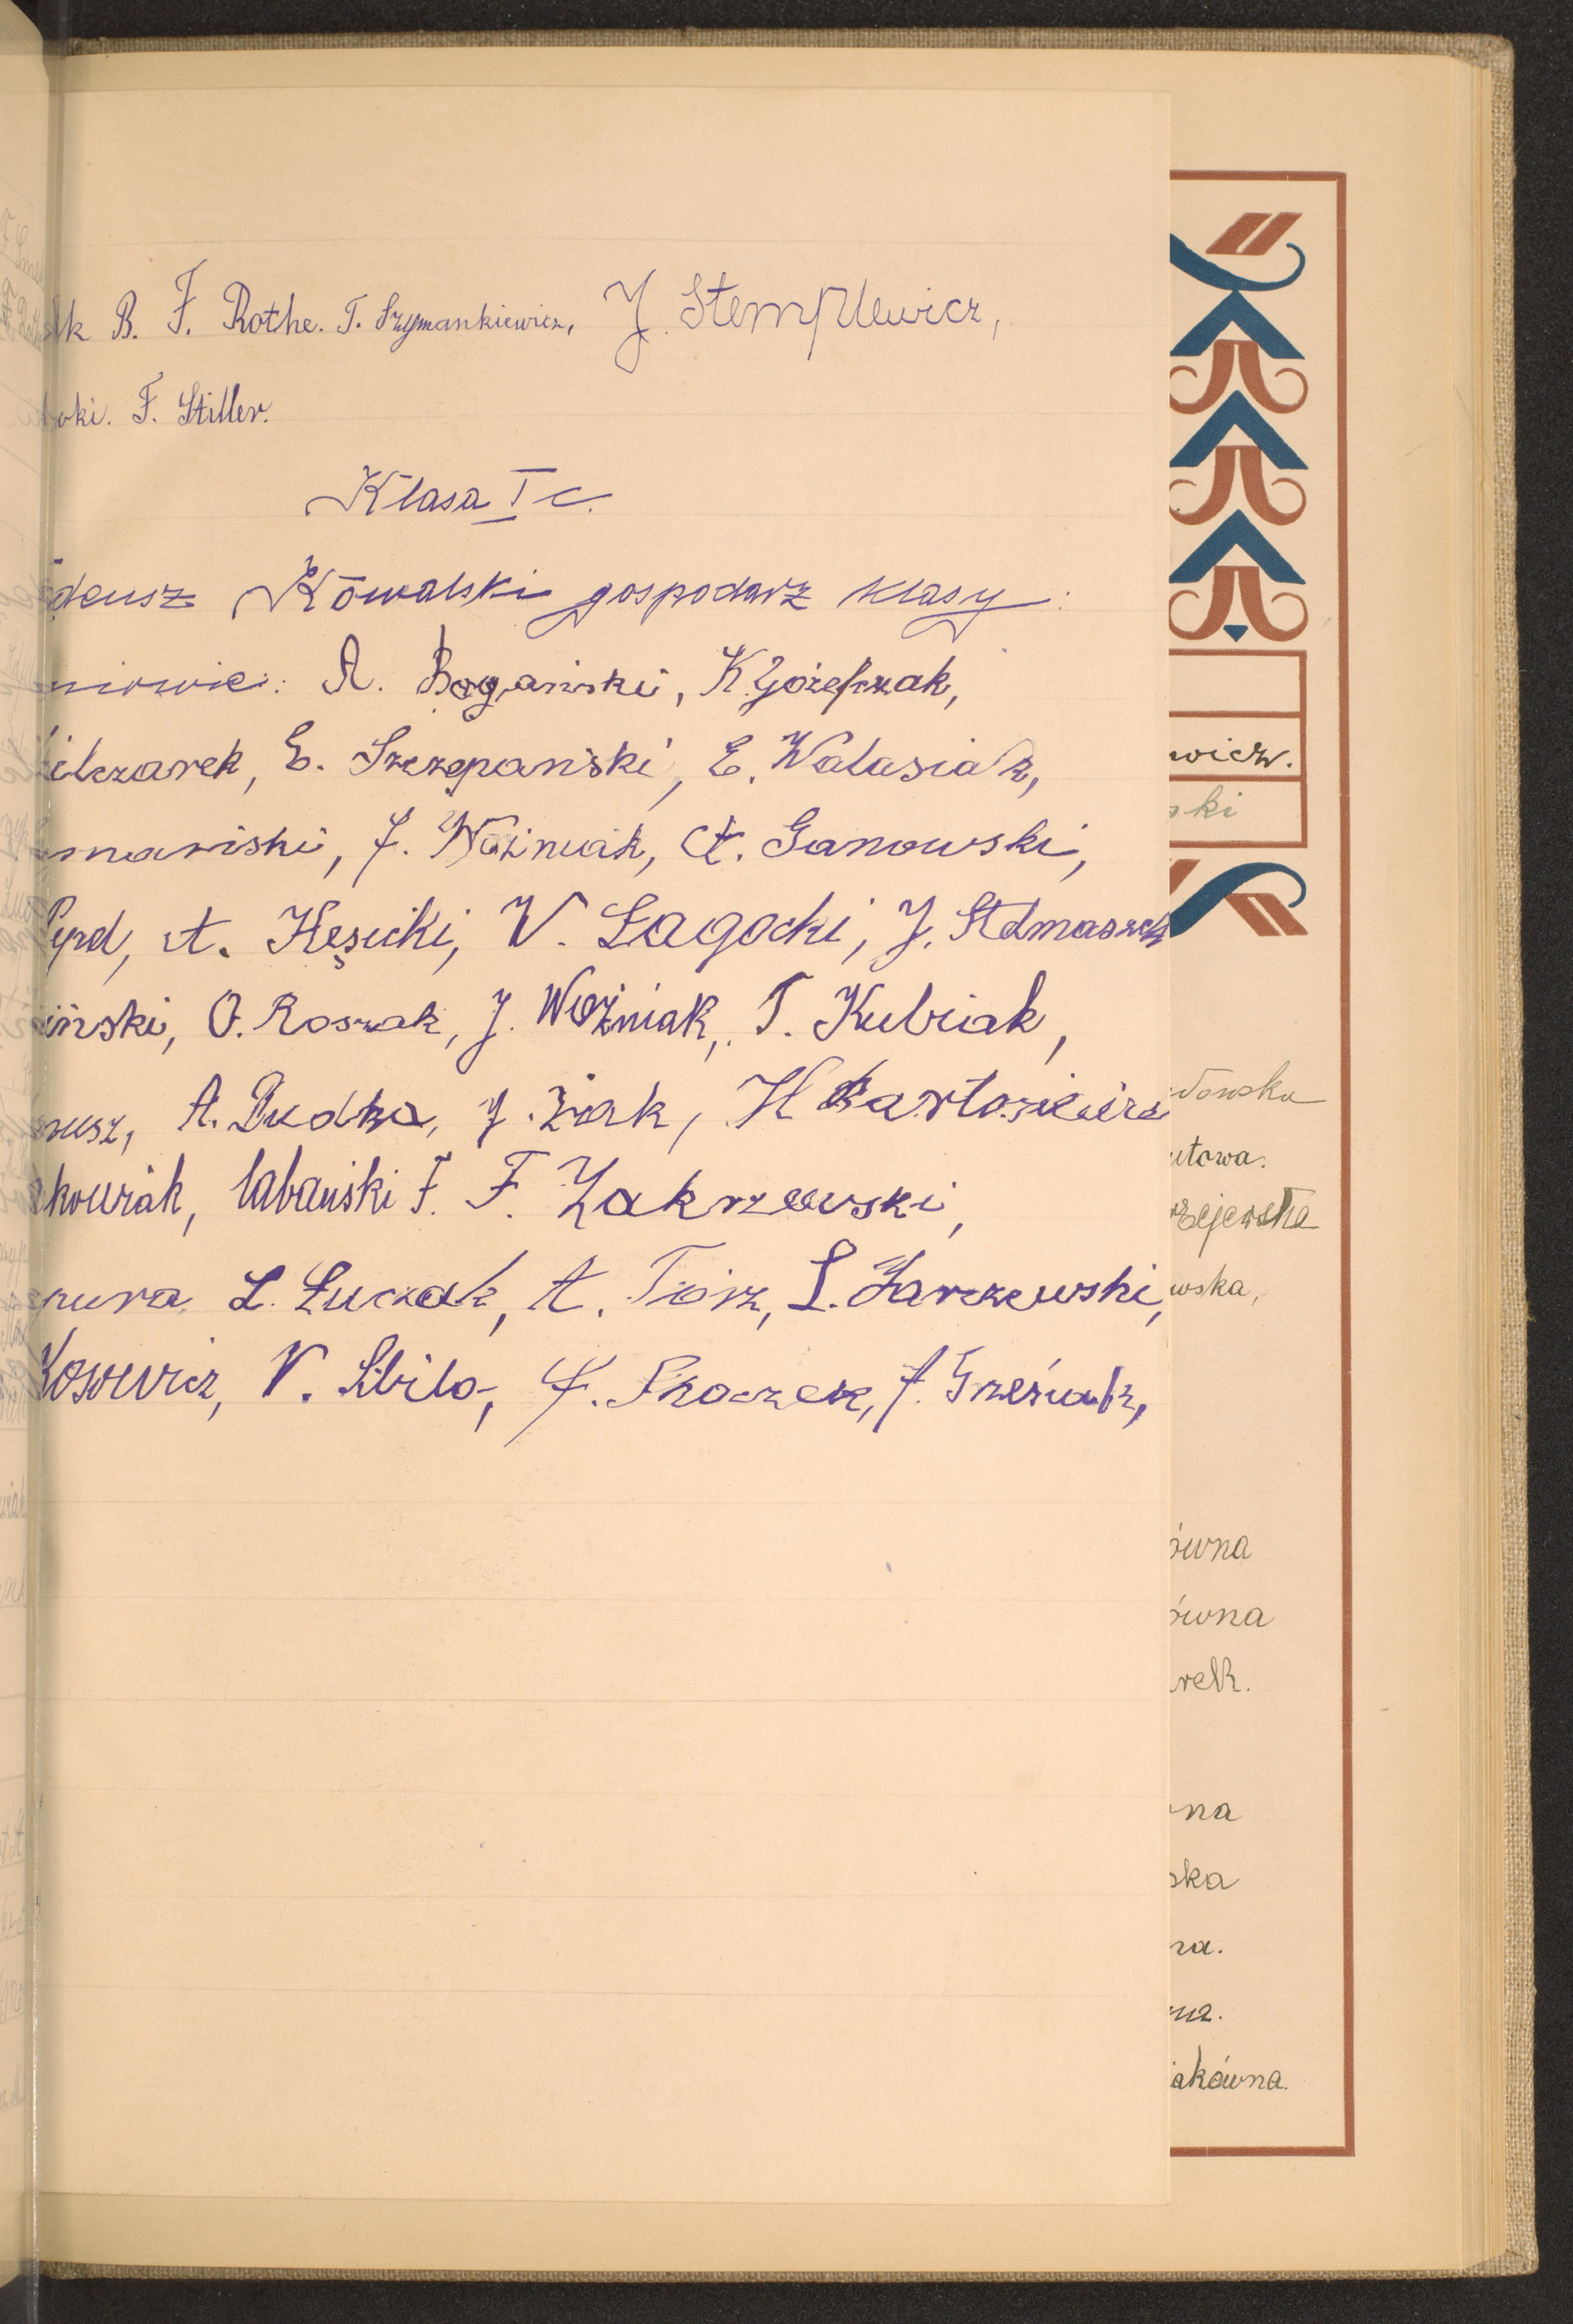 B. F. Rothe. T. Szymankiewicz, J. Stemplewicz,
oki. F. Stiller.
Klasa I c.
deusz Kowalski gospodarz klasy:
niowie: A. Bogański, K. Józefczak,
ilczarek, E. Szczepański, E. Walasiak,
mański, J. Woźniak, A. Ganowski,
Pyrd, A. Kęsicki, W. Łagocki, J.
iński, O. Roszak, J. Woźniak, T. Kubiak,
nusz, A. Dudka, J. Żak, H.
kowiak, Łabański F. F. Zakrzewski,
pura, L. Łuczak, A. Tórz, L. Jarczewski,
Kosowicz, W. F. J. Grześiak,
wicz.
ski
utowa.
rzejewska
wska,
ówna
ówna
rek.
na
ska
na.
na.
iakówna.